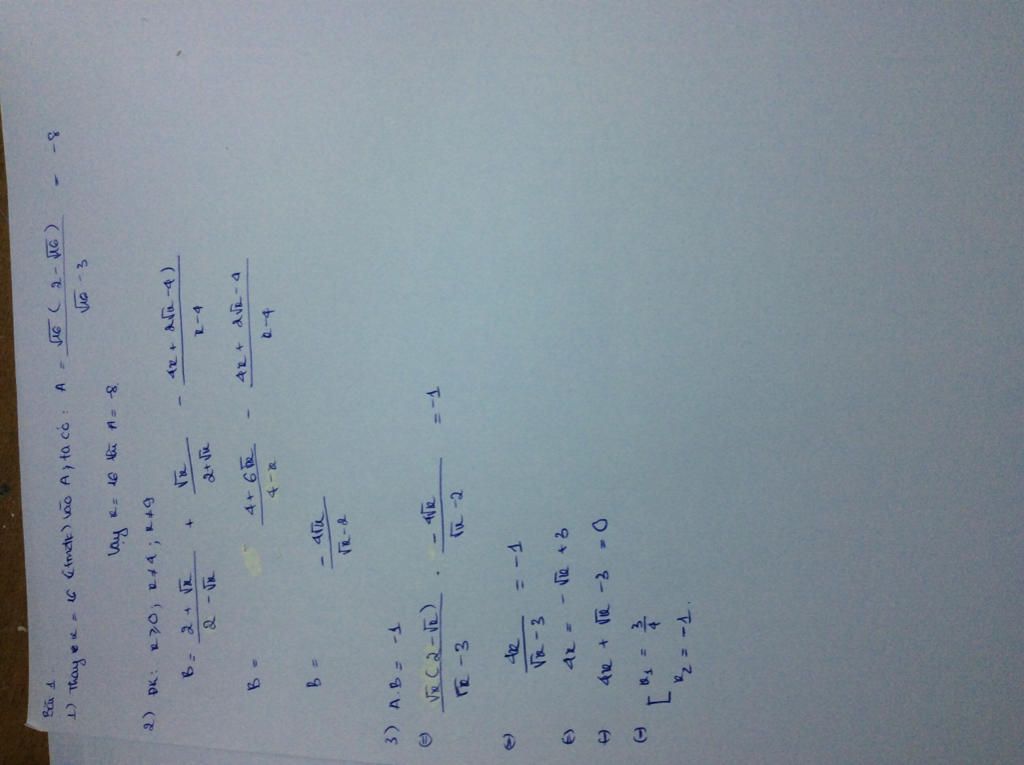 Bài 1
1) Thay x = 16 (tmđk) vào A, ta có : A = √16 ( 2 - √16 ) / √16 - 3 = -8
Vậy x = 16 thì A = -8
2) ĐK: x ⩾ 0 ; x ≠ 4 ; x ≠ 9
B = 2 + √x / 2 - √x + √x / 2+√x - 4x + 2√x - 4) / x - 4
B = 4 + 6√x / 4 - x - 4x + 2√x - 4 / x - 4
B = - 4√x / √x - 2
3) A.B = -1
(=) √x ( 2 - √x) / √x - 3 . - 4√x / √x - 2 = -1
(=) 4x / √x - 3 = -1
(=) 4x = - √x + 3
(=) 4x + √x - 3 = 0
(=) [ x1 = 3/4
x2 = -1.